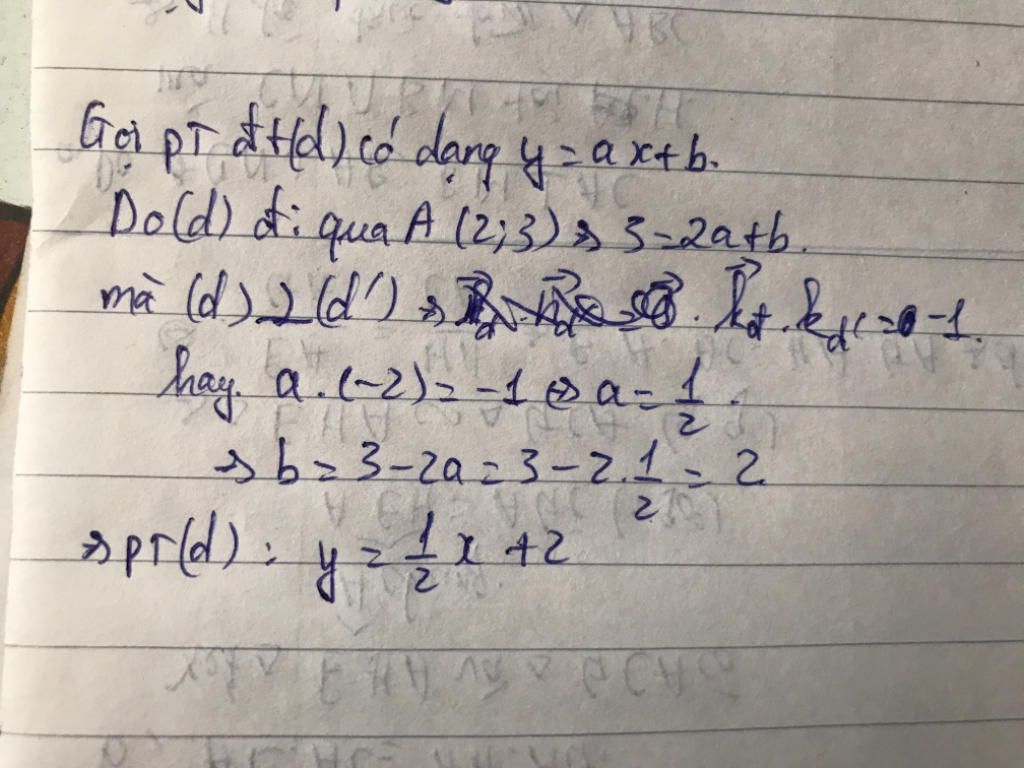 Gọi PT đt(d) có dạng y = ax + b.
Do (d) đi qua A (2;3) => 3 = 2a + b.
mà (d) ⊥ (d') => k_d . k_d' = -1.
hay. a . (-2) = -1 <=> a = 1/2.
=> b = 3 - 2a = 3 - 2. 1/2 = 2
=> PT(d) : y = 1/2 x + 2